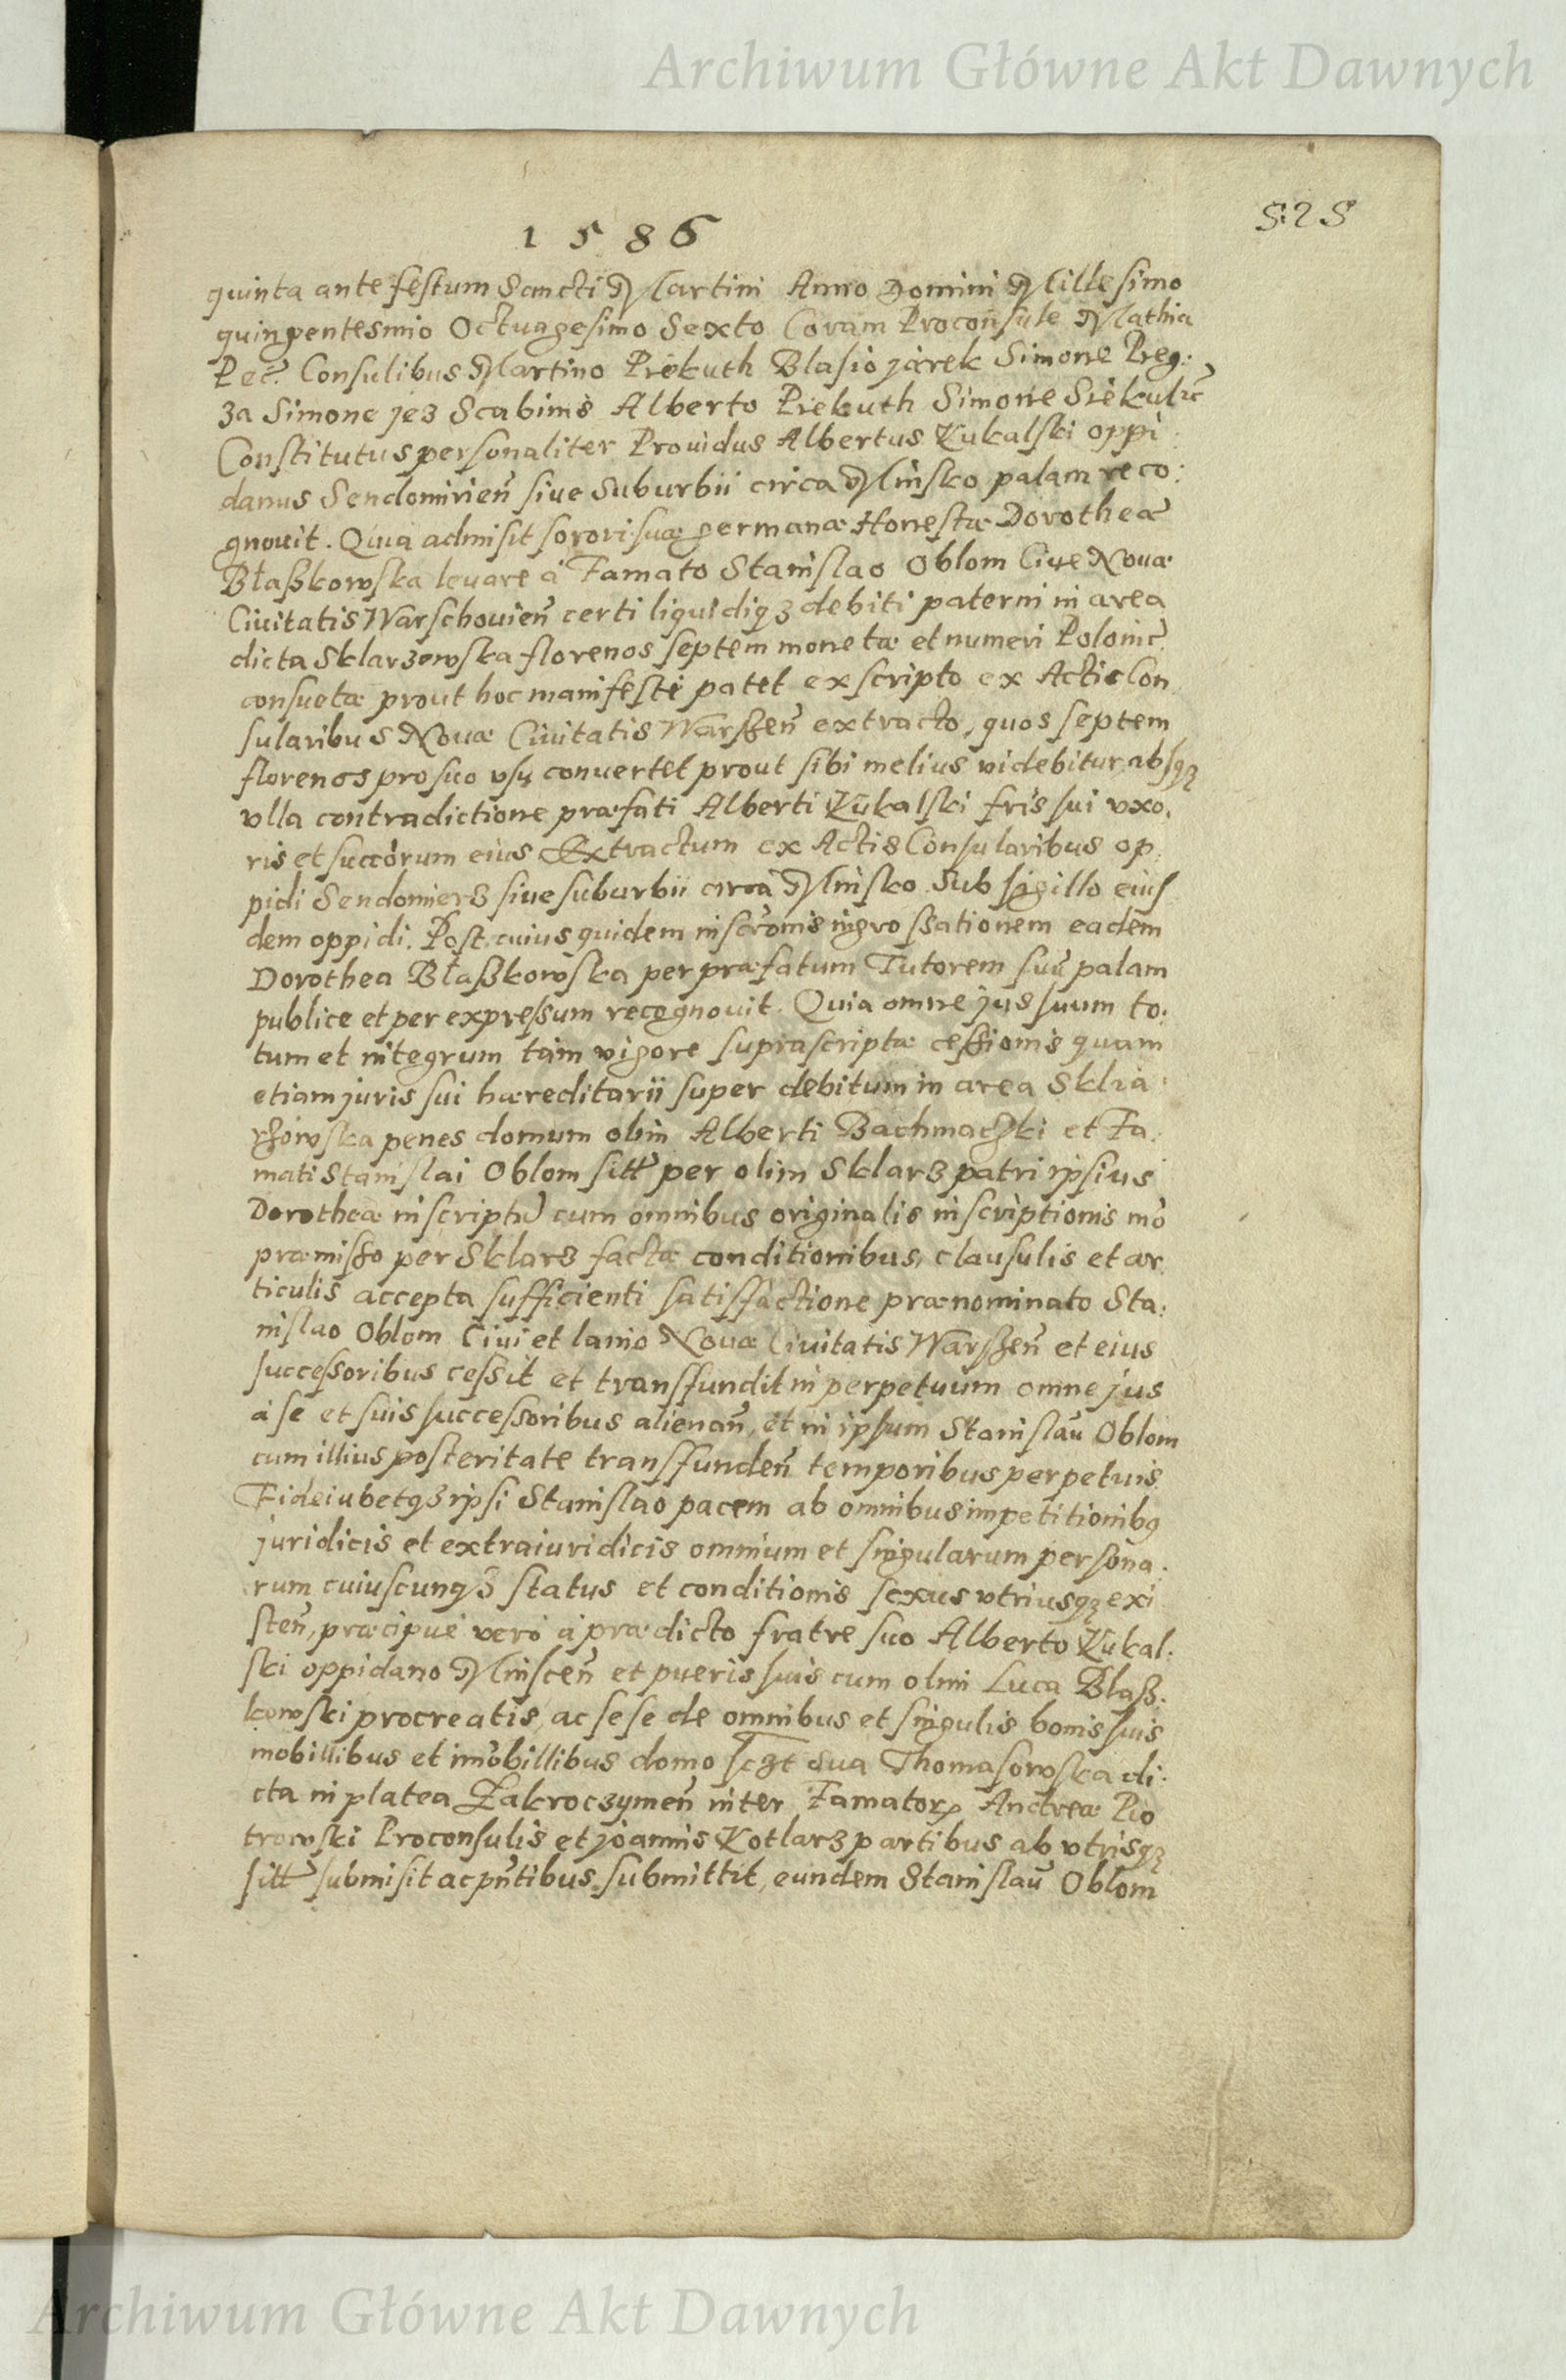 Archiwum Główne Akt Dawnych
525
1586
quinta ante festum Sancti Martini Anno Domini Millesimo
quingentesmio Octuagesimo Sexto Coram Proconsule Mathia
Pec. Consulibus Martino Piekuth Blasio jarek Simone Preg:
za Simone jez Scabinis Alberto Piekuth Simone Siekulic
Constitutus personaliter Prouidus Albertus Kukalski oppi
danus Sendomirień siue Suburbii circa Minsko palam reco:
gnouit. Quia admisit sorori suæ germanæ Honestæ Dorotheæ
Błaszkowska leuare à Famato Stanislao Oblom Ciue Nouæ
Ciuitatis Warschouień certi liquidiqз debiti paterni in area
dicta Sklarzowska florenos septem monetæ et numeri Polonic
consuetæ prout hoc manifeste patet ex scripto ex Actis Con
sularibus Nouæ Ciuitatis Warszeń extracto, quos septem
florenos pro suo vsu conuertet prout sibi melius videbitur absqз
vlla contradictione præfati Alberti Kukalski fris sui vxo,
ris et succorum eius Extractum ex Actis Consularibus op
pidi Sendomierz siue suburbii circa Minsko Sub sigillo eius
dem oppidi. Post cuius quidem inscronis ingrossationem eadem
Dorothea Błaszkowska per præfatum Tutorem suū palam
publice et per expressum recognouit. Quia omne jus suum to:
tum et integrum tàm vigore suprascriptæ cessionis quam
etiam juris sui hæreditarii super debitum in area Sklia
rzowska penes domum olim Alberti Bachmaczki et Fa,
mati Stanislai Oblom sitt per olim Sklarz patri ipsius
Dorotheæ inscriptū cum omnibus originalis inscriptionis mō
præmisso per Sklarz factæ conditionibus, clausulis et ar
ticulis accepta sufficienti satisfactione prænominato Sta:
nislao Oblom Ciui et lanio Nouæ Ciuitatis Warszeń et eius
successoribus cessit et transfundit in perpetuum omne jus
à se et suis successoribus alienań, et in ipsum Stanislaū Oblom
cum illius posteritate transfundeń temporibus perpetuis
Fideiubetqз ipsi Stanislao pacem ab omnibus impetitionibq
juridicis et extraiuridicis omnium et singularum persona.
rum cuiuscunqз status et conditionis sexus vtriusqз exi
steń, præcipuè verò à prædicto fratre suo Alberto Kukal:
ski oppidano Minsceń et pueris suis cum olim Luca Błasz:
kowski procreatis, ac sese de omnibus et singulis bonis suis
mobillibus et imobillibus domo sczt sua Thomasowska di:
cta in platea Zakroczymeń inter Famatorp Andreæ Pio
trowski Proconsulis et joannis Kotlarz partibus ab vtrisqз
sitt submisit ac pntibus submittit, eundem Stanislaū Oblom
Archiwum Główne Akt Dawnych